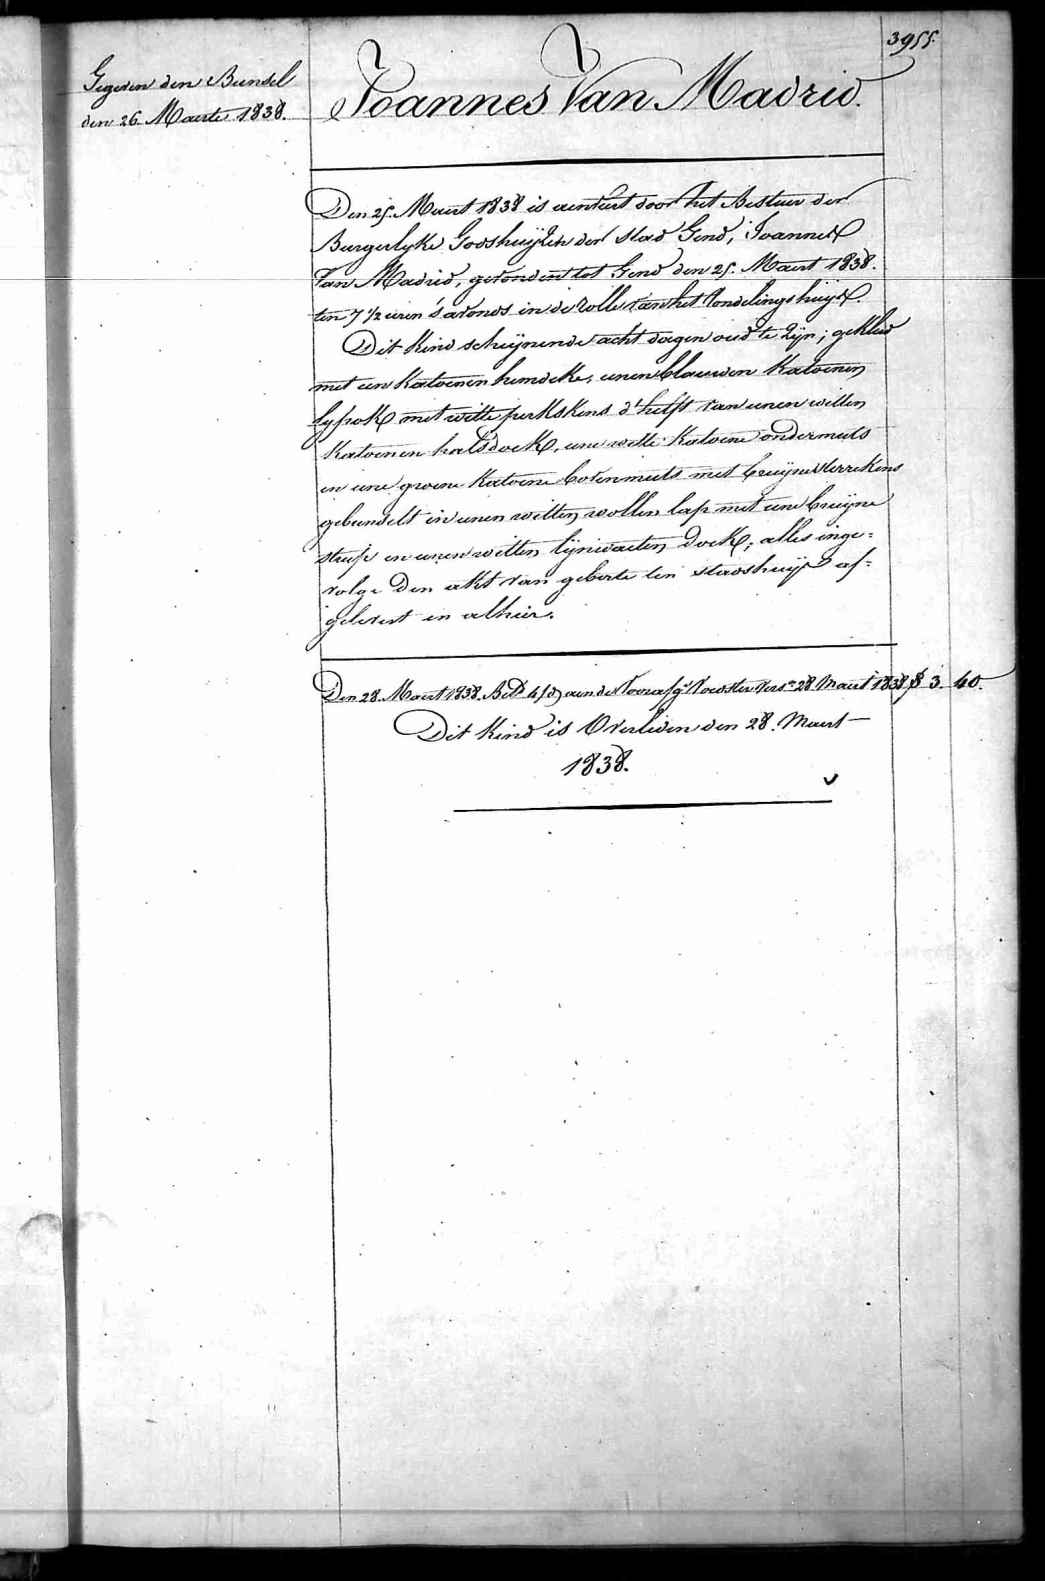 3955.
Gegeven den Bundel
den 26. Maerte 1838.
Joannes Van Madrid.
Den 25. Maert 1838 is aenveert door het Bestuer der
Burgerlyke Godshuÿzen der Stad Gend, Joannes
Van Madrid, gevonden tot Gend den 25. Maert 1838.
ten 7 1/2 uren 's avonds in de Rolle van het Vondelingshuÿs.
Dit Kind schynende acht dagen oud te zÿn; gekleed
met een Katoenen hemdeke, eenen blauwen Katoenen
lyfrok met witte perkskens d'helft van eenen witten
Katoenen halsdoek, eene witte Katoene ondermuts
en eene groene Katoene bovenmuts met bruÿne sterrekens
gebundelt in eenen witten wollen lap met eene bruÿne
streep en eenen witten lÿnwaeten doek; alles inge=
volge den akt van geborte ten stadshuÿse af=
gelevert en alhier.
Den 28. Maert 1838. Bet. aen de Voedster 28 Maert 1838 3. 40.
Dit Kind is Overleden den 28. Maert
1838.